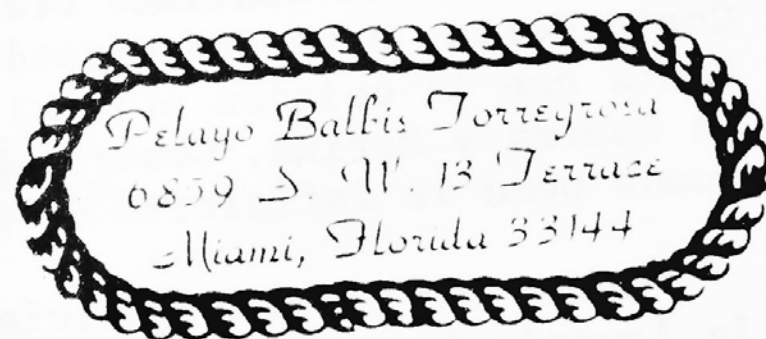 Pelayo Balbis Torregrosa
6859 S. W. 13 Terrace
Miami, Florida 33144